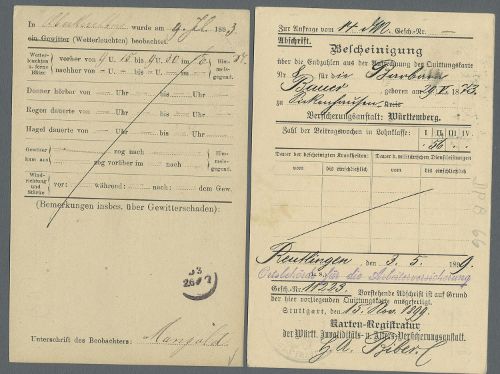 In wurde am 9. Juli 1893
ein Gewitter (Wetterleuchten) beobachtet.
Wetter-
leuchten
i. ferne
Blitze
vorher von 9 U. bis 9 U. 30 im
nachher von - U. - bis - U. - im
Him-
mels-
gegend.
Donner hörbar von — Uhr bis — Uhr.
Regen dauerte von — Uhr bis — Uhr.
Hagel dauerte von — Uhr bis — Uhr.
Gewitter
kam aus
zog nach
zog vorüber im nach
Him-
mels-
gegend.
Wind-
richtung
und
Stärke
vor: während: nach: dem Gew.
(Bemerkungen insbes. über Gewitterschaden):
Unterschrift des Beobachters: Mangold
Zur Anfrage vom Gesch-Nr.
Abschrift.
Bescheinigung
über die Endzahlen aus der Aufrechnung der Quittungskarte
Nr. für die Barbara
geboren am 29. V. 1873
zu Kreis
Versicherungsanstalt: Württemberg.
Zahl der Beitragswochen in Lohnklasse: I II III IV
56
Dauer der bescheinigten Krankheiten: Dauer d. militärischen Dienstleistungen
vom bis einschließlich vom bis einschließlich
Reutlingen, den 3. 5. 1899.
Ortsbehörde für die Arbeiterversicherung
Gesch.-Nr. 11223. Vorstehende Abschrift ist auf Grund
der hier vorliegenden Quittungskarte ausgefertigt.
Stuttgart, den 15. Nov. 1899.
Karten-Registratur
der Württ. Invaliditäts- u. Alters-Versicherungsanstalt.